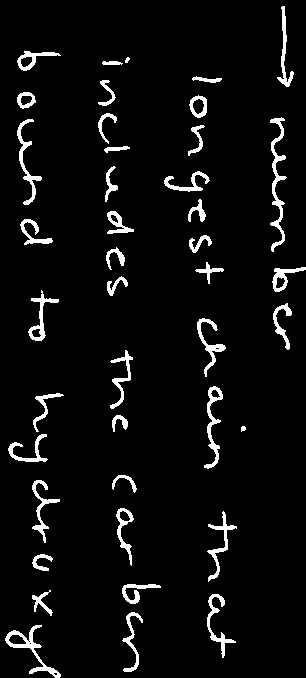 → number
longest chain that
includes the carbon
bound to hydroxyl